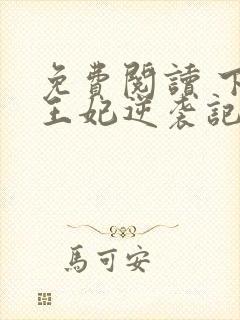 免費閱讀 下
王妃逆袭記
馬可安